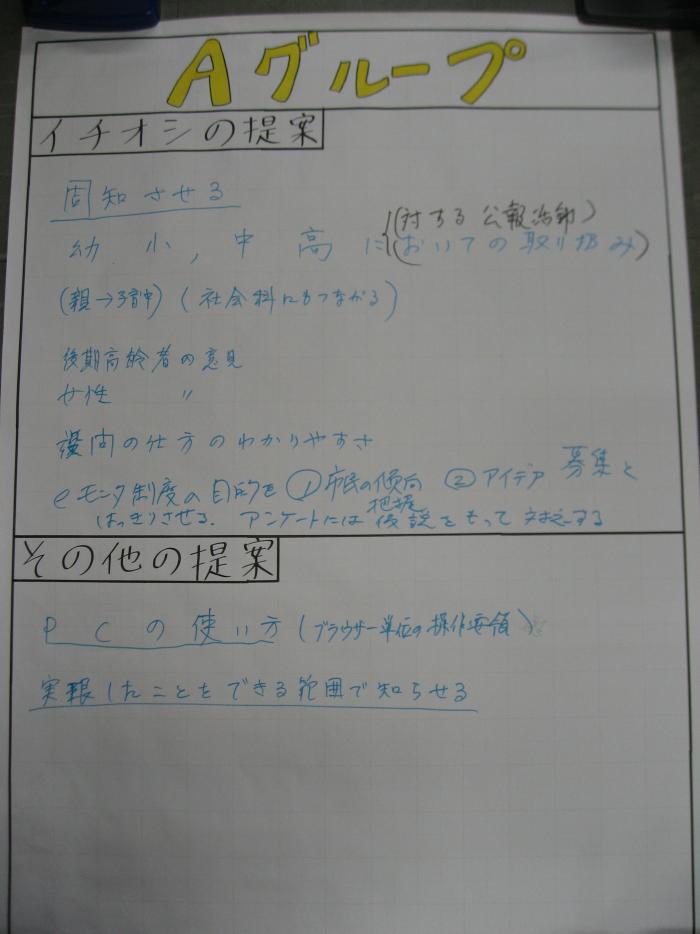 Aグループ
イチオシの提案
周知させる
幼 小, 中 高 に (対する 公報活動)
(おいての取り組み)
(親→子育中) (社会科にもつながる)
後期高齢者の意見
女性 〃
設問の仕方のわかりやすさ
eモニタ制度の目的を ①市民の傾向把握 ②アイデア 募集と
はっきりさせる. アンケートには仮説をもって 対応する
その他の提案
PCの使い方 (ブラウザー単位の操作要領)
実現したことをできる範囲で知らせる